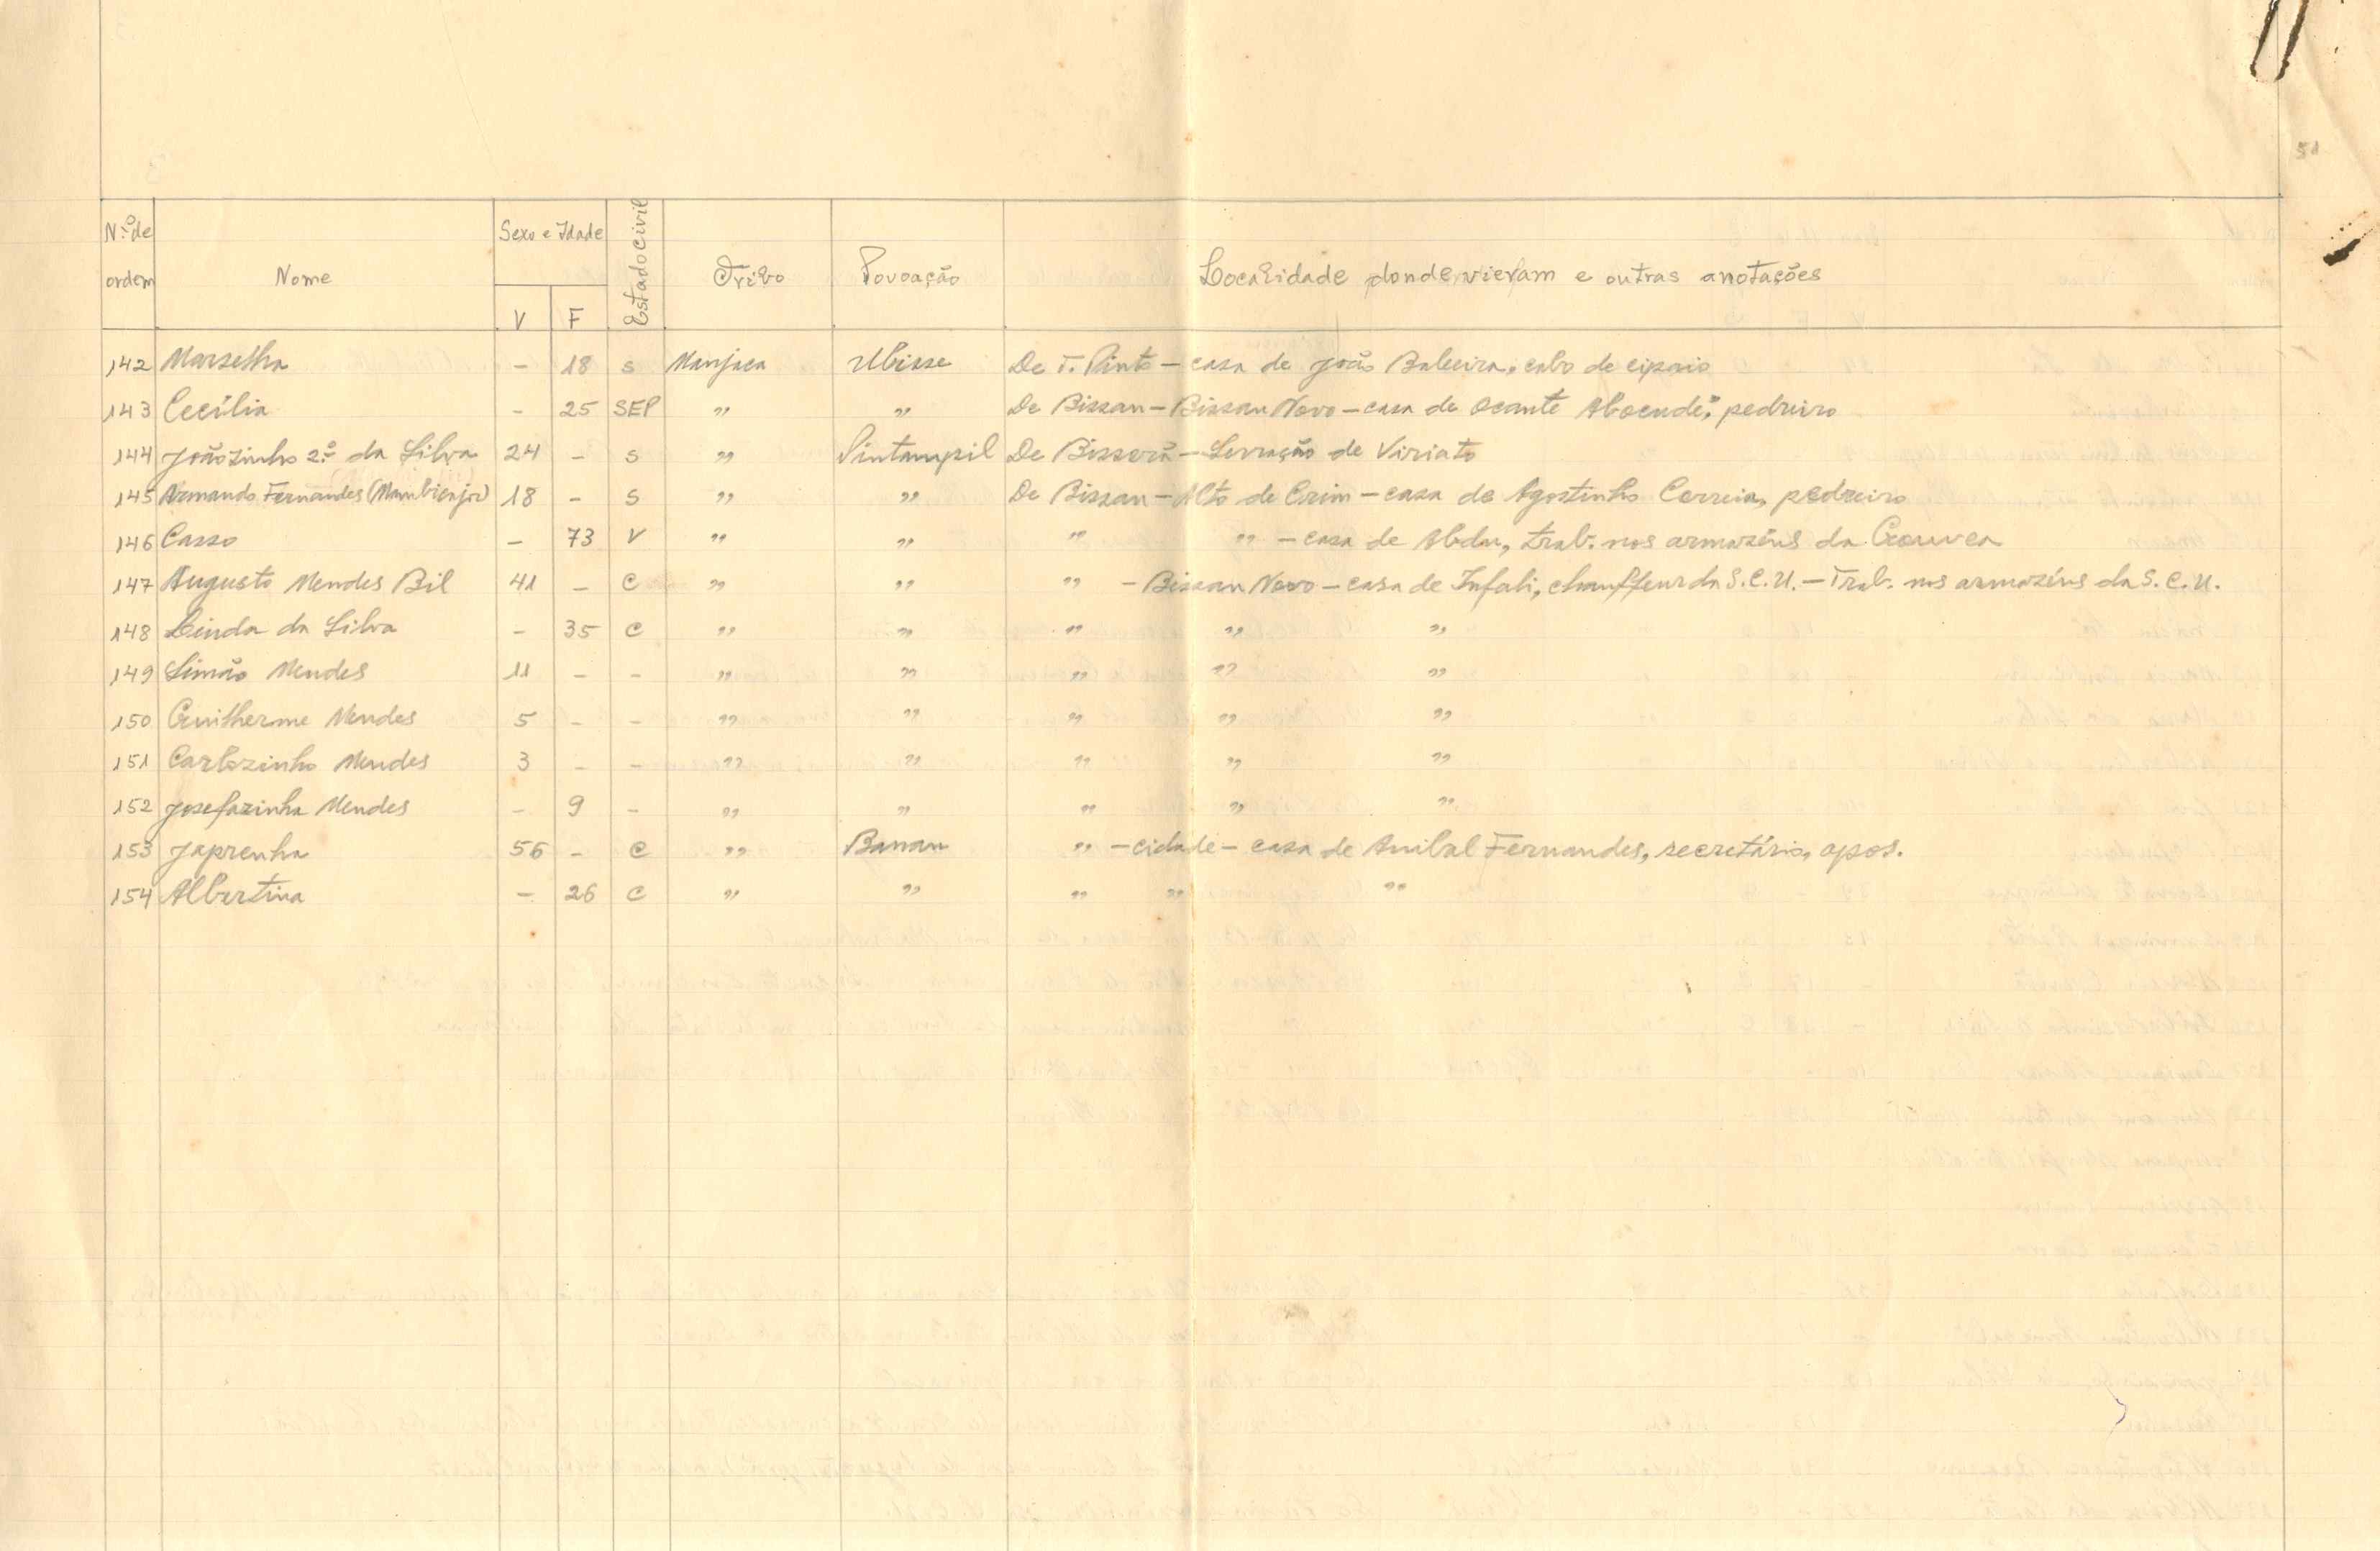 51
N.º de ordem Nome Sexo e Idade V F Estado civil Tribo Povoação Localidade donde vieram e outras anotações
142 Marselha - 18 s Manjaca Ubisse De T. Pinto - casa de João Baleeira, cabo de cipaio
143 Cecília - 25 SEP " " De Bissau - Bissau Novo - casa de Ocante pedreiro
144 Joãozinho 2.º da Silva 24 - s " Pintampil De Bissorã - Serração de Viriato
145 Armando Fernandes 18 - s " " De Bissau - Alto de Crim - casa de Agostinho Correia, pedreiro
146 Casso - 73 V " " " " - casa de Abdu, trab. nos armazéns da Gouvea
147 Augusto Mendes Bil 41 - C " " " - Bissau Novo - casa de Infali, chauffeur da S.C.U. - Trab. nos armazéns da S.C.U.
148 Linda da Silva - 35 C " " " " "
149 Simão Mendes 11 - - " " " " "
150 Guilherme Mendes 5 - - " " " " "
151 Carlozinho Mendes 3 - - " " " " "
152 Josefazinha Mendes - 9 - " " " " "
153 Japrenha 56 - C " Banau " - cidade - casa de Anibal Fernandes, secretário, apos.
154 Albertina - 26 C " " " " "